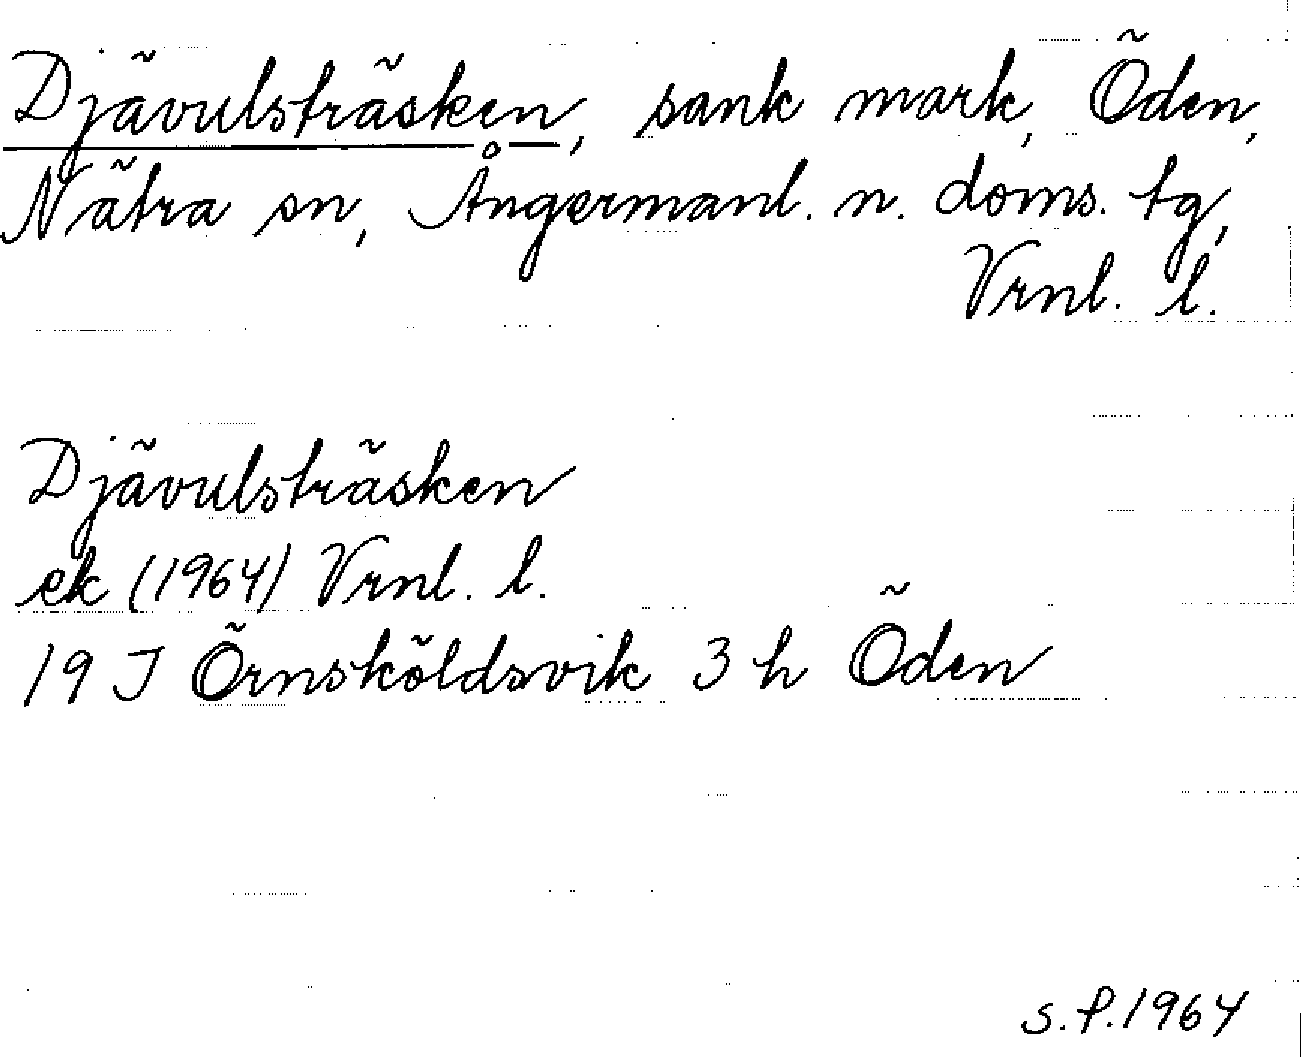 Djävulsträsken, sank mark, Öden,
Nätra sn, Ångermanl. n. doms. tg,
Vrnl. l.
Djävulsträsken
ek (1964) Vrnl. l.
19 J Örnsköldsvik 3 h Öden
s.f.1964